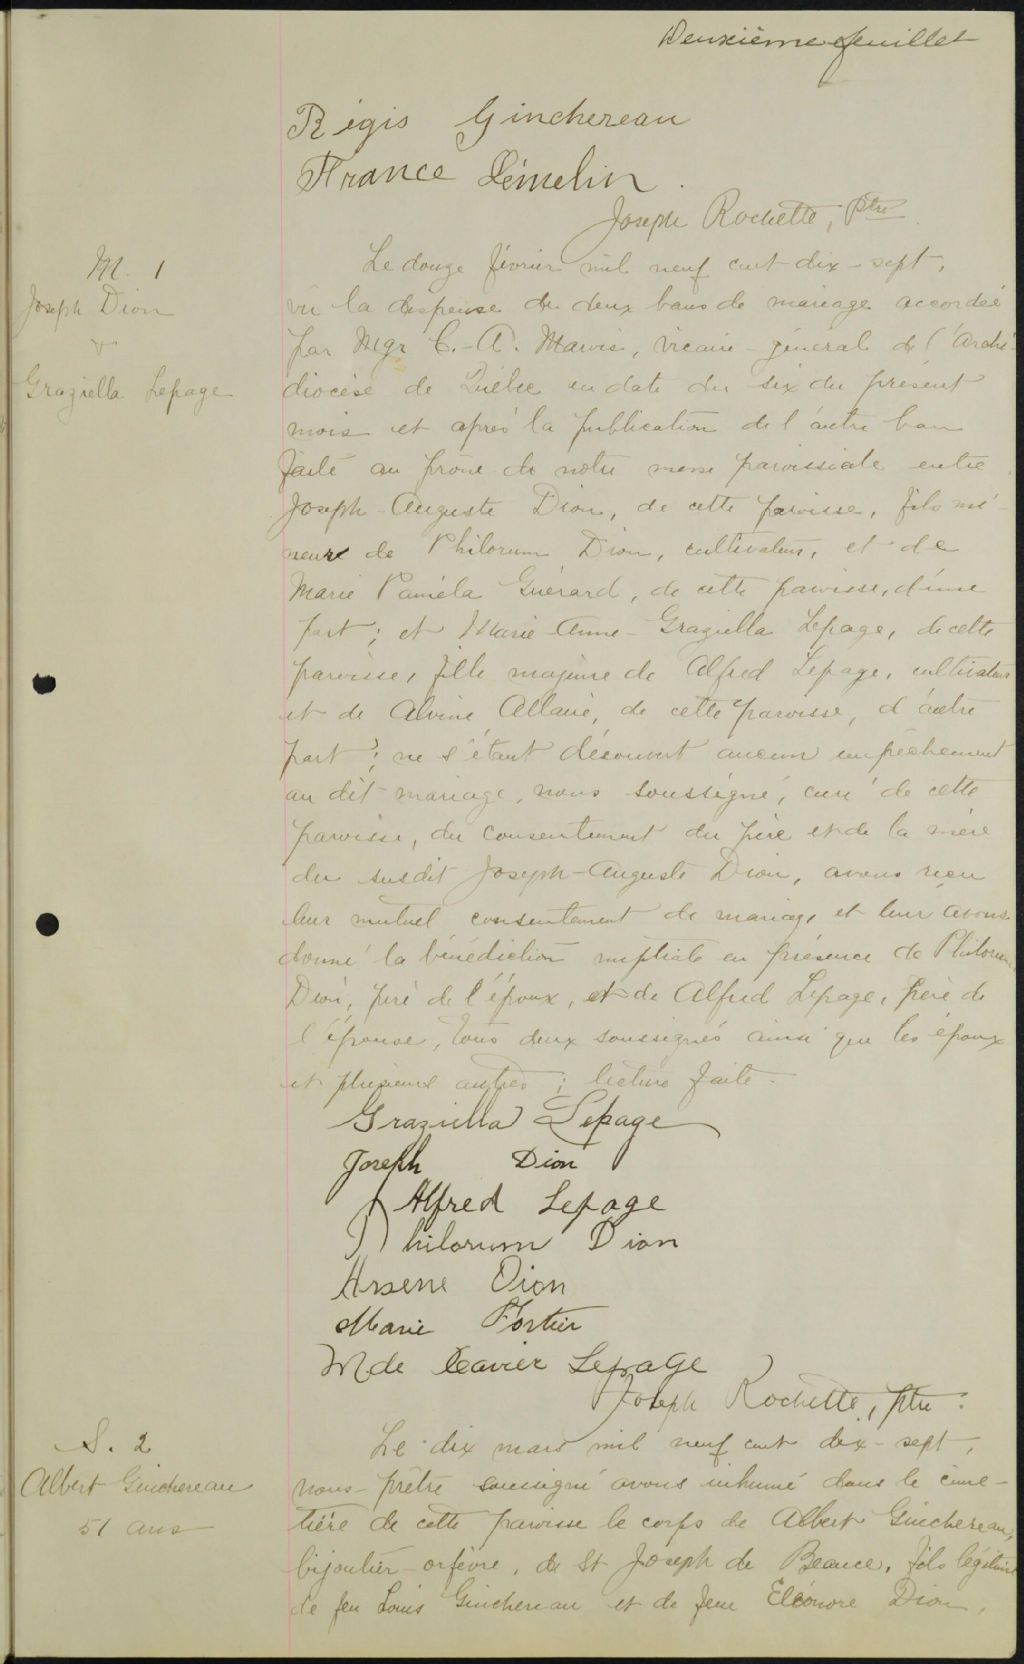 Deuxième feuillet
Régis Ginchereau
France Lémelin.
Joseph Rochette, ptre
M. 1
Joseph Dion
&
Graziella Lepage
Le douze février mil neuf cent dix-sept,
vu la dispense de deux bans de mariage accordée
par Mgr C.-A. Marois, vicaire-général de l'Archi-
diocèse de Québec en date du six du présent
mois et après la publication de l'autre ban
faite au prône de notre messe paroissiale entre
Joseph-Auguste Dion, de cette paroisse, fils mi-
neur de Philorum Dion, cultivateur, et de
Marie Paméla Guérard, de cette paroisse, d'une
part; et Marie-Anne-Graziella Lepage, de cette
paroisse, fille majeure de Alfred Lepage, cultivateur
et de Alvine Allaire, de cette paroisse, d'autre
part; ne s'étant découvert aucun empêchement
au dit mariage, nous soussigné, curé de cette
paroisse, du consentement du père et de la mère
du susdit Joseph-Auguste Dion, avons reçu
leur mutuel consentement de mariage et leur avons
donné la bénédiction nuptiale en présence de Philorum
Dion, père de l'époux, et de Alfred Lepage, père de
l'épouse, tous deux soussignés ainsi que les époux
et plusieurs autres; lecture faite.
Graziella Lepage
Joseph Dion
Alfred Lepage
Philorum Dion
Arsene Dion
Marie Fortier
Mde Xavier Lepage
Joseph Rochette, ptre.
S. 2
Albert Guichereau
51 ans
Le dix mars mil neuf cent dix-sept,
nous prêtre soussigné avons inhumé dans le cime-
tière de cette paroisse le corps de Albert Guichereau,
bijoutier-orfèvre, de St Joseph de Beauce, fils légitime
de feu Louis Guichereau et de feue Eléonore Dion,